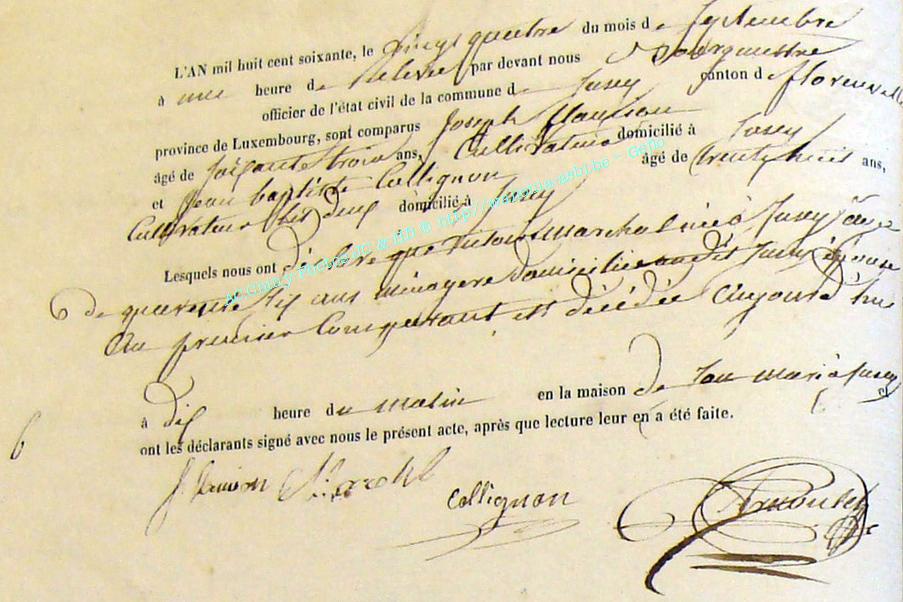 L'AN mil huit cent soixante, le vingt quatre du mois de Septembre
à une heure de relevée par devant nous Bourgmestre
officier de l'état civil de la commune de Jusey canton de florenville
province de Luxembourg, sont comparus Joseph
âgé de Soixante trois ans, Cultivateur domicilié à Jusey
et Jean baptiste Collignon âgé de trente huit ans,
Cultivateur domicilié à Jusey
Lesquels nous ont déclaré que Marchal née à Jusey âgée
de quarente six ans ménagère domiciliée au dit Jusey épouse
du premier Comparant est décédée aujourd'hui
à dix heure du matin en la maison de son mari à Jusey et
ont les déclarants signé avec nous le présent acte, après que lecture leur en a été faite.
6
Collignon